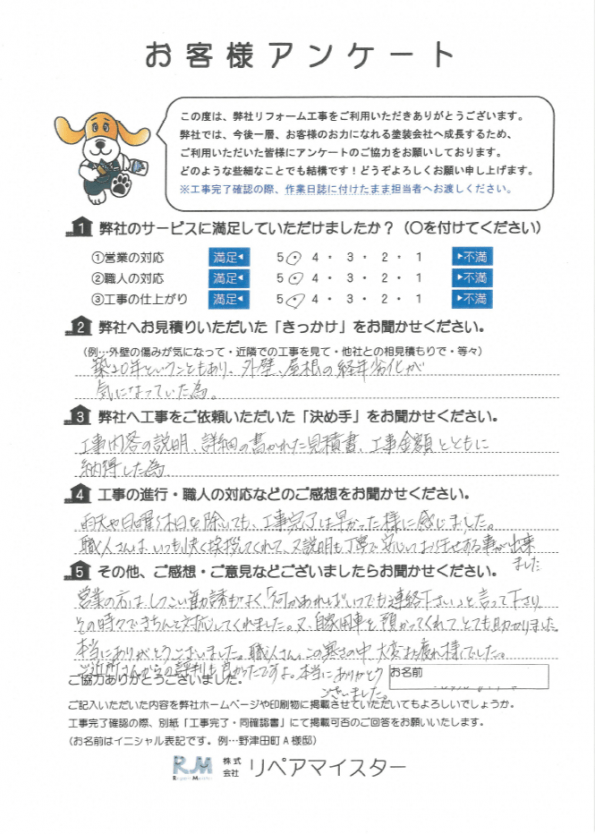 お客様アンケート
この度は、弊社リフォーム工事をご利用いただきありがとうございます。
弊社では、今後一層、お客様のお力になれる塗装会社へ成長するため、
ご利用いただいた皆様にアンケートのご協力をお願いしております。
どのような些細なことでも結構です！どうぞよろしくお願い申し上げます。
※工事完了確認の際、作業日誌に付けたまま担当者へお渡しください。
1 弊社のサービスに満足していただけましたか？（〇を付けてください）
①営業の対応 満足◀ 5・4・3・2・1 ▶不満
②職人の対応 満足◀ 5・4・3・2・1 ▶不満
③工事の仕上がり 満足◀ 5・4・3・2・1 ▶不満
2 弊社へお見積りいただいた「きっかけ」をお聞かせください。
（例…外壁の傷みが気になって・近隣での工事を見て・他社との相見積もりで・等々）
築20年ということもあり、外壁、屋根の経年劣化が
気になっていた為。
3 弊社へ工事をご依頼いただいた「決め手」をお聞かせください。
工事内容の説明、詳細の書かれた見積書、工事金額とともに
納得した為
4 工事の進行・職人の対応などのご感想をお聞かせください。
雨天や日曜休日を除いても、工事完了は早かった様に感じました。
職人さんは、いつも快く挨拶してくれて、又説明も丁寧で安心してお任せする事が出来
ました
5 その他、ご感想・ご意見などございましたらお聞かせください。
営業の方は、しつこい勧誘もなく、「何かあればいつでも連絡下さい」と言って下さり、
その時々できちんと対応してくれました。又、自家用車を預かってくれて、とても助かりました。
本当にありがとうございました。職人さん、この寒さの中、大変お疲れ様でした。
ご近所さんからの評判も良かったですよ。本当にありがとう
ございました。
ご協力ありがとうございました。
お名前
ご記入いただいた内容を弊社ホームページや印刷物に掲載させていただいてもよろしいでしょうか。
工事完了確認の際、別紙「工事完了・同確認書」にて掲載可否のご回答をお願いいたします。
（お名前はイニシャル表記です。例…野津田町A様邸）
RM 株式会社 リペアマイスター